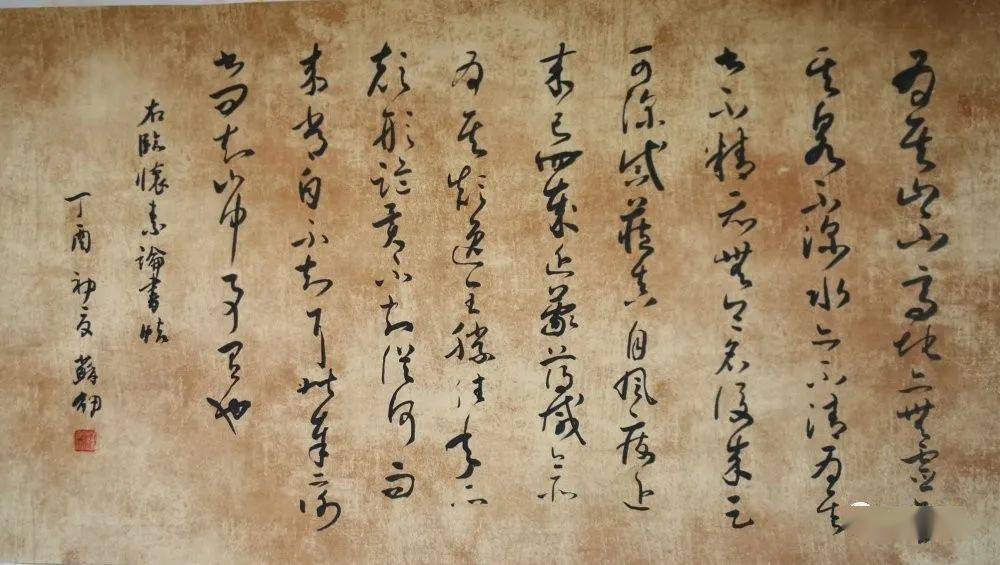 為其山不高地亦無靈為
其泉不深水亦不清為其
書不精亦無令名後來足
可深戒藏真自風廢近
來已四歲近蒙薄減今所
為其顛逸全勝往年所
顛形詭異不知從何而
來常自不知耳昨奉二謝
書問知山中事有也
右臨懷素論書帖
丁酉初夏 蘇